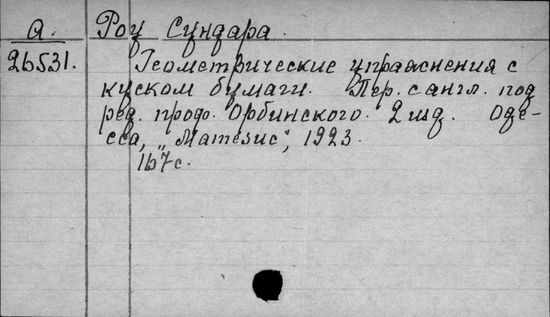 А. Роу Сундара.
26531. Геометрические упражнения с
куском бумаги. Пер. с англ. под
ред. проф. Орбинского. 2 изд. Оде-
сса, „Матезис", 1923.
167 с.